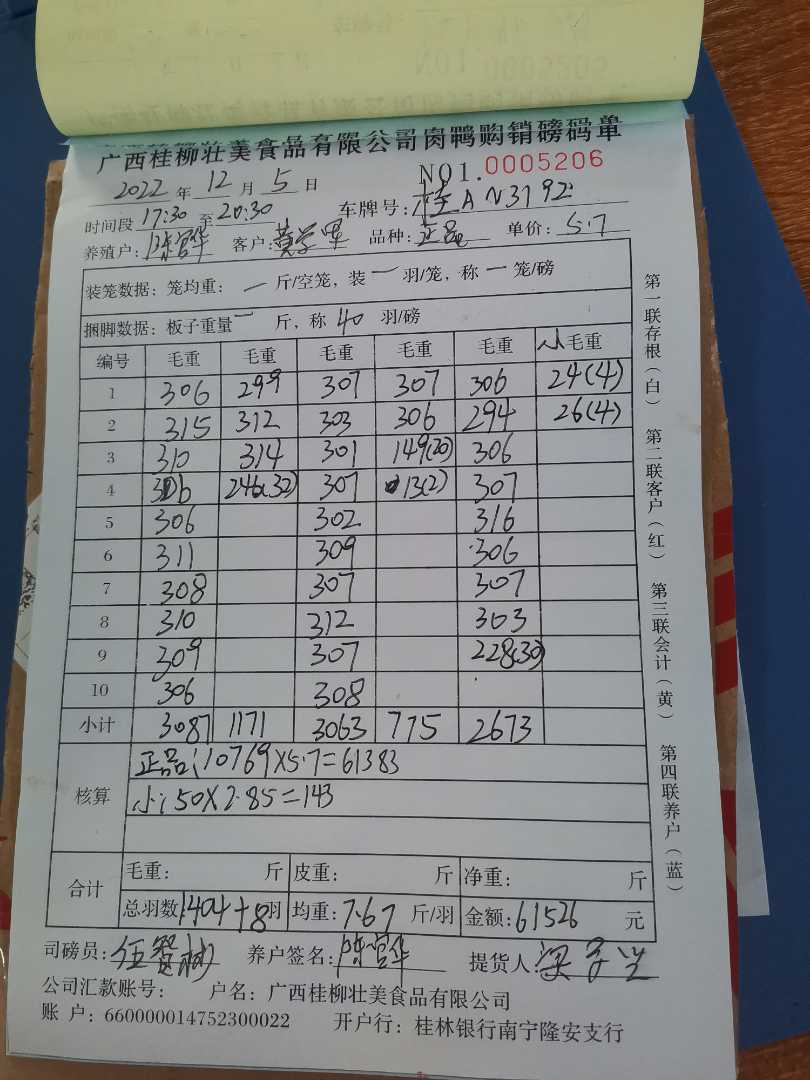 广西桂柳壮美食品有限公司肉鸭购销磅码单
2022 年 12 月 5 日 NO1.0005206
时间段 17:30 至 20:30 车牌号: 桂A N3792
养殖户: 陈营华 客户: 黄学军 品种: 正品 单价: 5.7
装笼数据: 笼均重: 一 斤/空笼, 装 一 羽/笼, 称 一 笼/磅
捆脚数据: 板子重量 一 斤, 称 40 羽/磅
编号 毛重 毛重 毛重 毛重 毛重 小毛重
1 306 299 307 307 306 24(4)
2 315 312 303 306 294 26(4)
3 310 314 301 149(20) 306
4 306 246(32) 307 13(2) 307
5 306 302 316
6 311 309 306
7 308 307 307
8 310 312 303
9 309 307 228(30)
10 306 308
小计 3087 1171 3063 775 2673
核算 正品:10769×5.7=61383
小:50×2.85=143
合计 毛重: 斤 皮重: 斤 净重: 斤
总羽数 1404+8 羽 均重: 7.67 斤/羽 金额: 61526 元
司磅员: 伍智彬 养户签名: 陈营华 提货人: 梁
公司汇款账号: 户名: 广西桂柳壮美食品有限公司
账 户: 660000014752300022 开户行: 桂林银行南宁隆安支行
第一联存根(白) 第二联客户(红) 第三联会计(黄) 第四联养户(蓝)